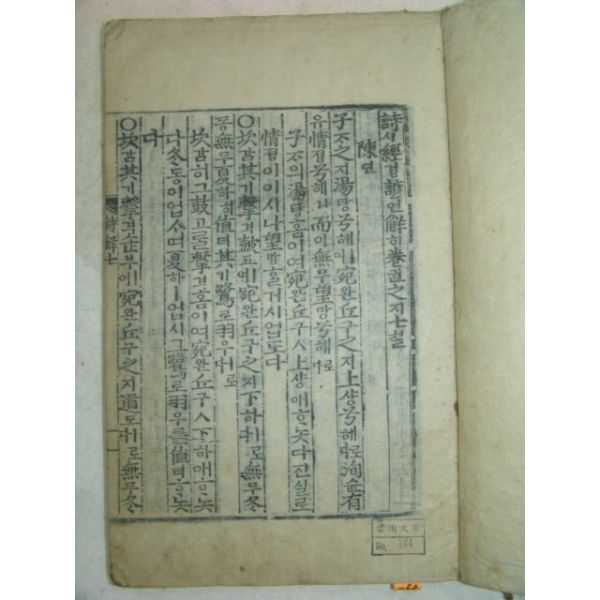 詩시經경諺언解ᄒᆡ卷권之지七칠
陳딘
子ᄌᆞ之지湯탕兮혜여宛완丘구之지上샹兮혜로다洵슌有
유情졍兮혜나而이無무望망兮혜로다
子ᄌᆞ의湯탕홈이여宛완丘구ㅅ上샹애ᄒᆞ놋다진실로
情졍이이시나望망홀거시업도다
○坎감其기擊격鼓고ㅣ여宛완丘구之지下하ㅣ로다無무冬
동無무夏하히値티其기鷺로羽우ㅣ로다
坎감히그鼓고를擊격홈이여宛완丘구ㅅ下하애ᄒᆞ놋
다冬동이업스며夏하ㅣ업시그鷺로羽우를値티ᄒᆞ놋
다
○坎감其기擊격缶부ㅣ여宛완丘구之지道도ㅣ로다無무冬
詩解七
No.